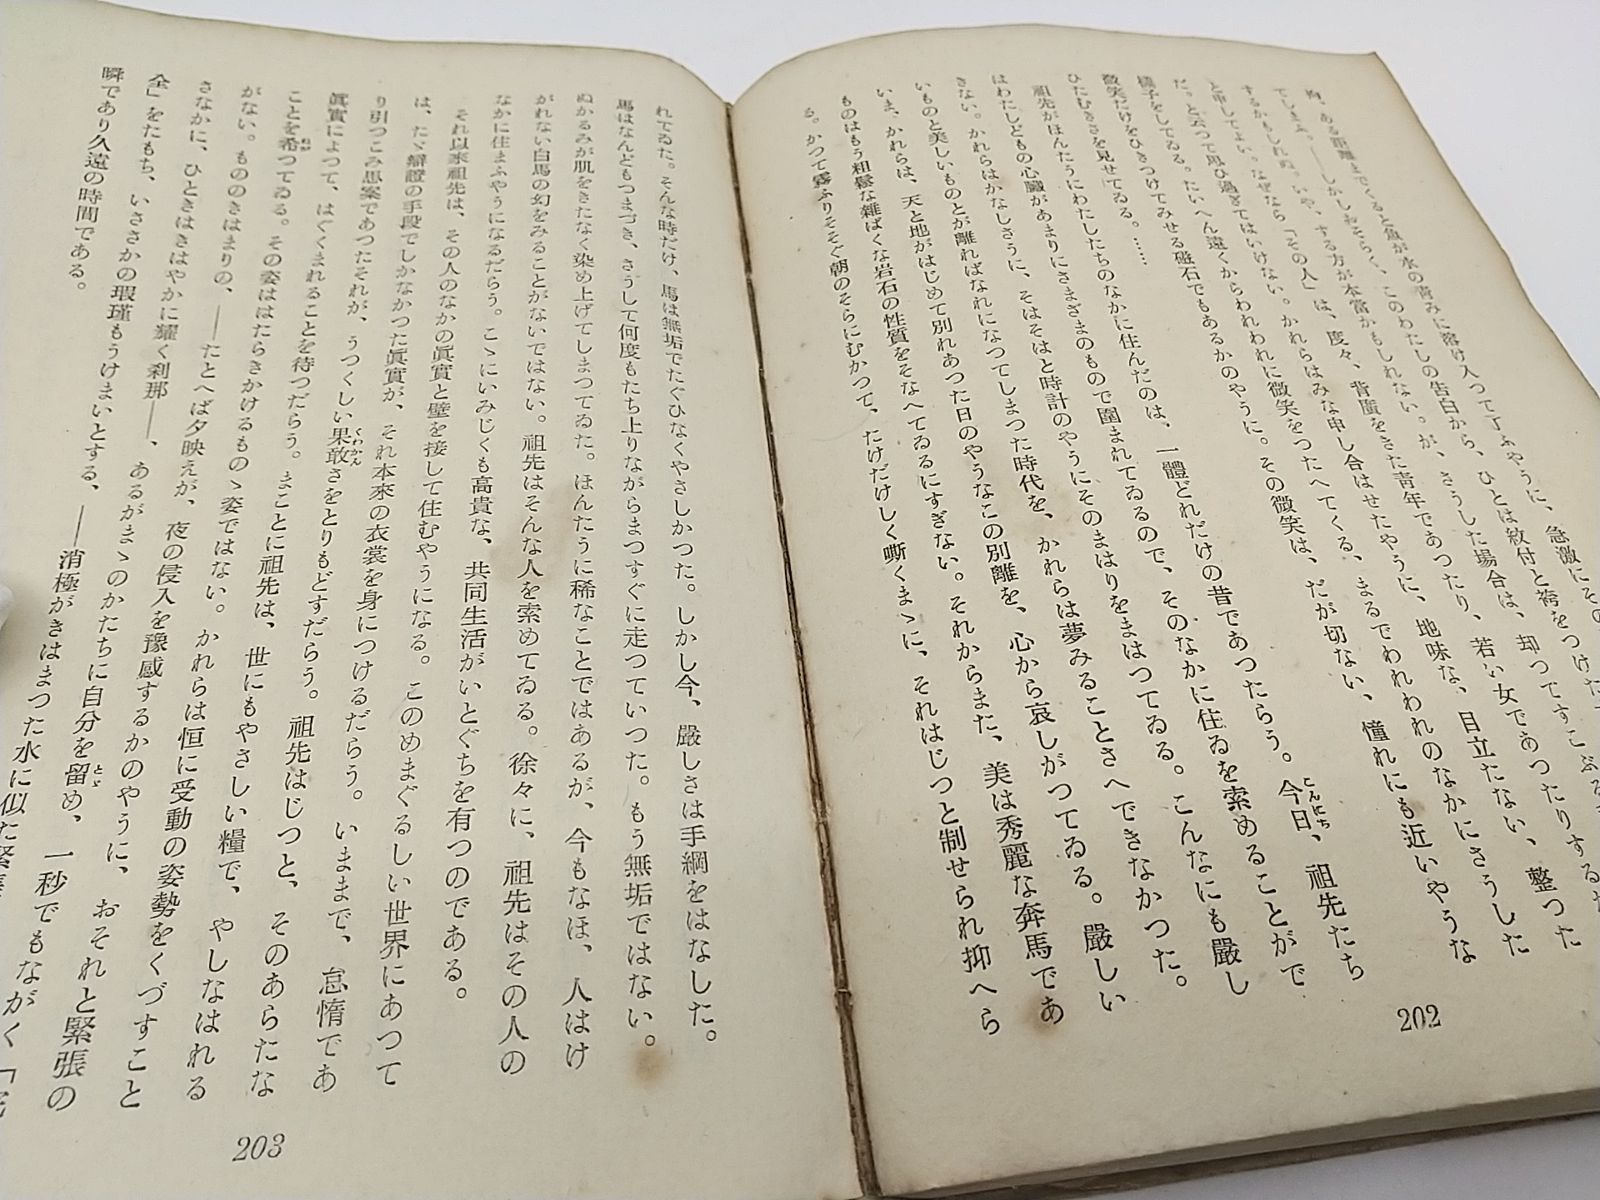 ある距離までくると魚が水の青みに溶け入つて了ふやうに、急激にその
てしまふ。――しかしおそらく、このわたしの告白から、ひとは紋付と袴をつけた
するかもしれぬ。いや、する方が本當かもしれない。が、さうした場合は、却つてすこぶる
と申してよい。なぜなら「その人」は、度々、背廣をきた青年であつたり、若い女であつたりするか
だ。と云つて思ひ過ぎてはいけない。かれらはみな申し合はせたやうに、地味な、目立たない、整つた
樣子をしてゐる。たいへん遠くからわれわれに微笑をつたへてくる、まるでわれわれのなかにさうした
微笑だけをひきつけてみせる磁石でもあるかのやうに。その微笑は、だが切ない、憧れにも近いやうな
ひたむきさを見せてゐる。……
祖先がほんたうにわたしたちのなかに住んだのは、一體どれだけの昔であつたらう。今日、祖先たち
はわたしどもの心臟があまりにさまざまのもので圍まれてゐるので、そのなかに住ゐを索めることがで
きない。かれらはかなしさうに、そはそはと時計のやうにそのまはりをまはつてゐる。こんなにも嚴し
いものと美しいものとが離ればなれになつてしまつた時代を、かれらは夢みることさへできなかつた。
いま、かれらは、天と地がはじめて別れあつた日のやうなこの別離を、心から哀しがつてゐる。嚴しい
ものはもう粗鬆な雜ばくな岩石の性質をそなへてゐるにすぎない。それからまた、美は秀麗な奔馬であ
る。かつて霧ふりそそぐ朝のそらにむかつて、たけだけしく嘶くまゝに、それはじつと制せられ抑へら
202
れてゐた。そんな時だけ、馬は無垢でたぐひなくやさしかつた。しかし今、嚴しさは手綱をはなした。
馬はなんどもつまづき、さうして何度もたち上りながらまつすぐに走つていつた。もう無垢ではない。
ぬかるみが肌をきたなく染め上げてしまつてゐた。ほんたうに稀なことではあるが、今もなほ、人はけ
がれない白馬の幻をみることがないではない。祖先はそんな人を索めてゐる。徐々に、祖先はその人の
なかに住まふやうになるだらう。こゝにいみじくも高貴な、共同生活がいとぐちを有つのである。
それ以來祖先は、その人のなかの眞實と壁を接して住むやうになる。このめまぐるしい世界にあつて
は、たゞ辯證の手段でしかなかつた眞實が、それ本來の衣裳を身につけるだらう。いままで、怠惰であ
り引つこみ思案であつたそれが、うつくしい果敢さをとりもどすだらう。祖先はじつと、そのあらたな
眞實によつて、はぐくまれることを待つだらう。まことに祖先は、世にもやさしい糧で、やしなはれる
ことを希つてゐる。その姿ははたらきかけるものゝ姿ではない。かれらは恒に受動の姿勢をくづすこと
がない。もののきはまりの、――たとへば夕映えが、夜の侵入を豫感するかのやうに、おそれと緊張の
さなかに、ひときはきはやかに耀く刹那――、あるがまゝのかたちに自分を留め、一秒でもながく「完
全」をたもち、いささかの瑕瑾もうけまいとする、――消極がきはまつた水に似た緊張の
瞬であり久遠の時間である。
203